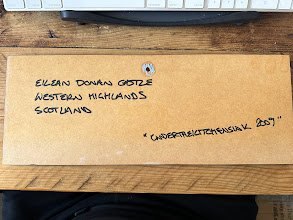 EILEAN DONAN CASTLE
WESTERN HIGHLANDS
SCOTLAND
"UNDERTHEKITCHENSINK 2009"